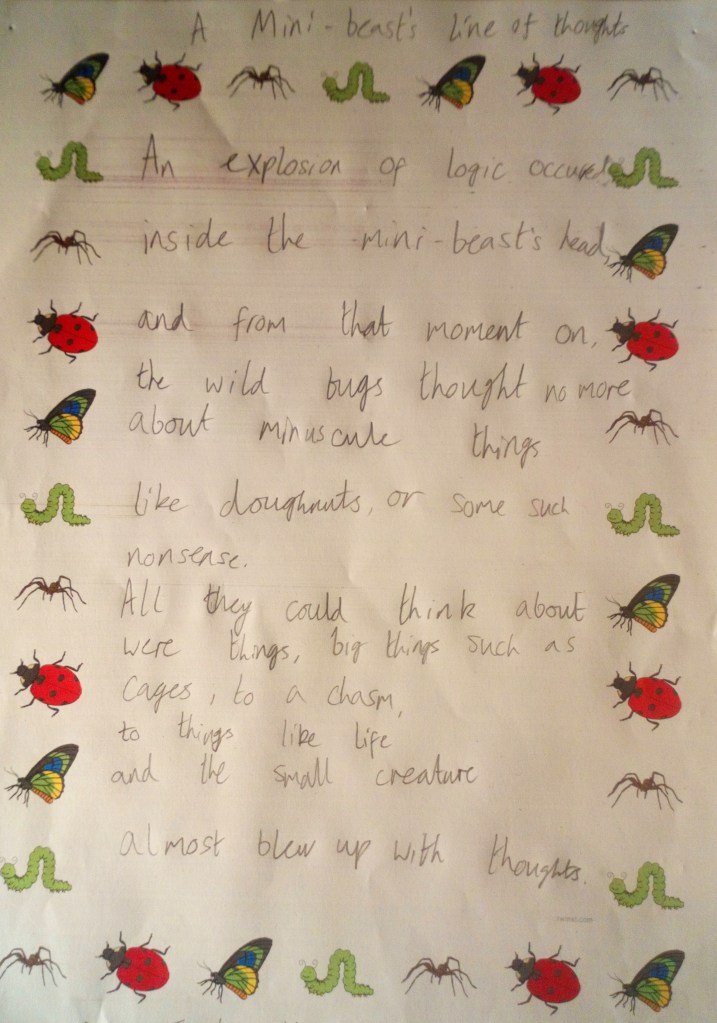 A Mini-beast's line of thoughts
An explosion of logic occured
inside the mini-beast's head,
and from that moment on,
the wild bugs thought no more
about minuscule things
like doughnuts, or some such
nonsense.
All they could think about
were things, big things such as
cages, to a chasm,
to things like life
and the small creature
almost blew up with thoughts.